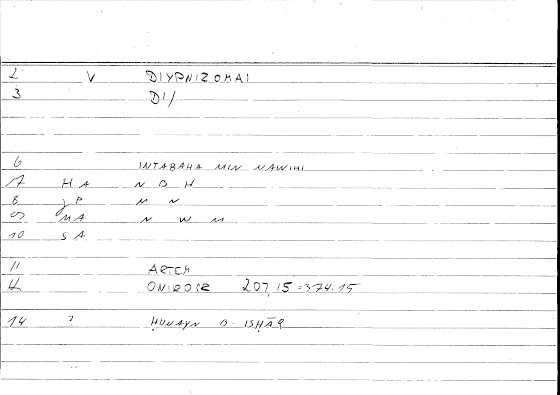 2 V DIYPNIZOMAI
3 DI/
6 INTABAHA MIN NAWMIHI
7 HA N B H
8 JP M N
9 MA N W M
10 SA
11 ARTEM
12 ONIROCR 207,15=374.15
14 ? ḤUNAYN B. ISḤĀQ